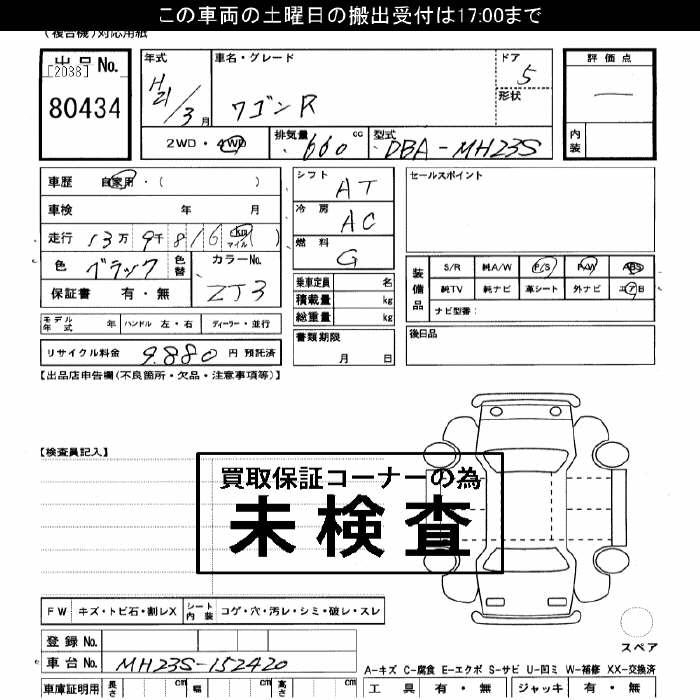 この車両の土曜日の搬出受付は17:00まで
(複合機)対応用紙
出品No.
[2038]
80434
年式
H21/3月
車名・グレード
ワゴンR
ドア
5
形状
2WD・4WD
排気量
660 cc
型式
DBA-MH23S
評価点
—
内装
車歴 自家用・( )
車検 年 月
走行 13万 9千 816 km マイル ( )
色 ブラック 色替
カラーNo.
ZJ3
保証書 有・無
シフト AT
冷房 AC
燃料 G
乗車定員 名
積載量 kg
総重量 kg
書類期限
月 日
セールスポイント
装備品
S/R 純A/W P/S P/W ABS
純TV 純ナビ 革シート 外ナビ エアB
ナビ型番:
後日品
モデル年式 年 ハンドル 左・右 ディーラー・並行
リサイクル料金 9.880 円 預託済
【出品店申告欄(不良箇所・欠品・注意事項等)】
【検査員記入】
買取保証コーナーの為
未検査
FW キズ・トビ石・割レX シート内装 コゲ・穴・汚レ・シミ・破レ・スレ
登録No.
車台No. MH23S-152420
車庫証明用 長さ cm 幅 cm 高さ cm
スペア
A-キズ C-腐食 E-エクボ S-サビ U-凹ミ W-補修 XX-交換済
工具 有・無 ジャッキ 有・無